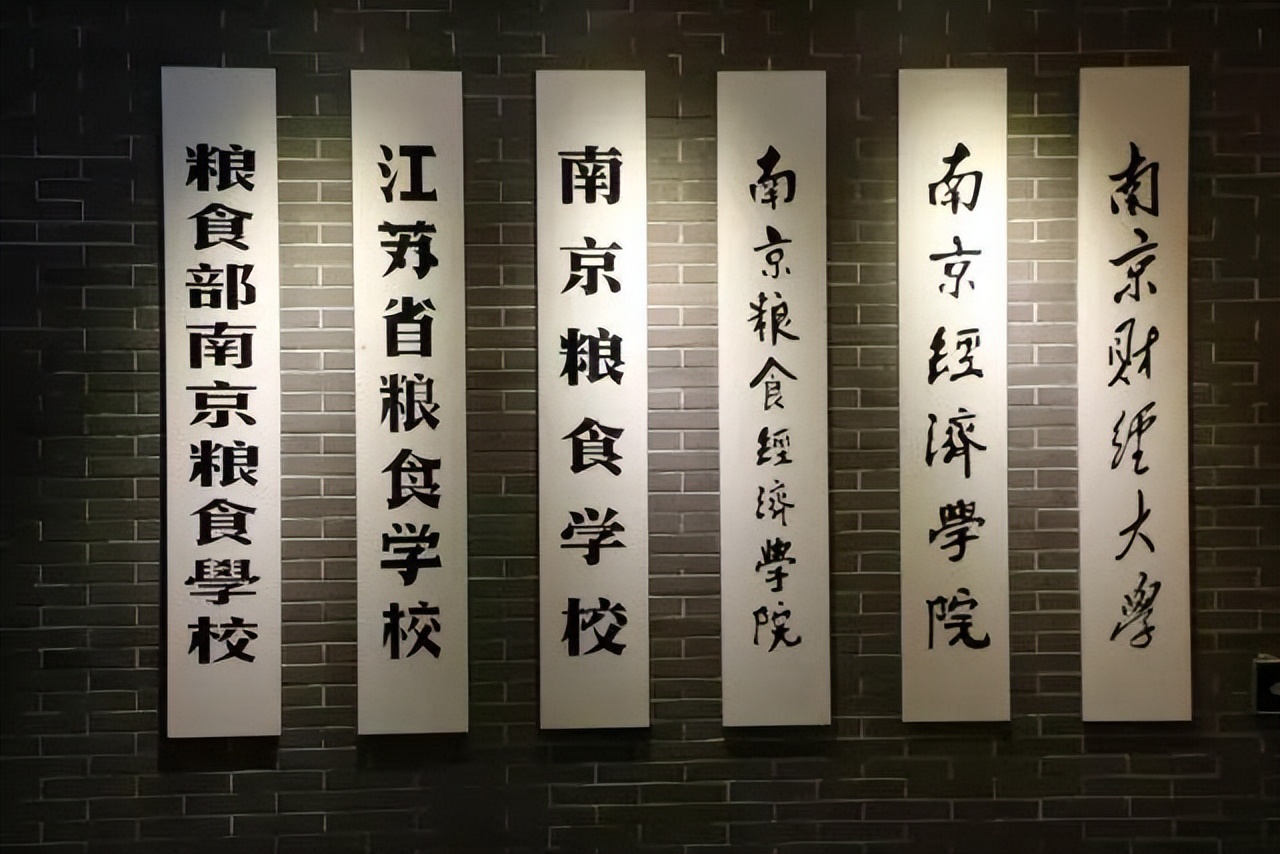 粮食部南京粮食學校
江苏省粮食学校
南京粮食学校
南京粮食經濟學院
南京經濟學院
南京财經大學